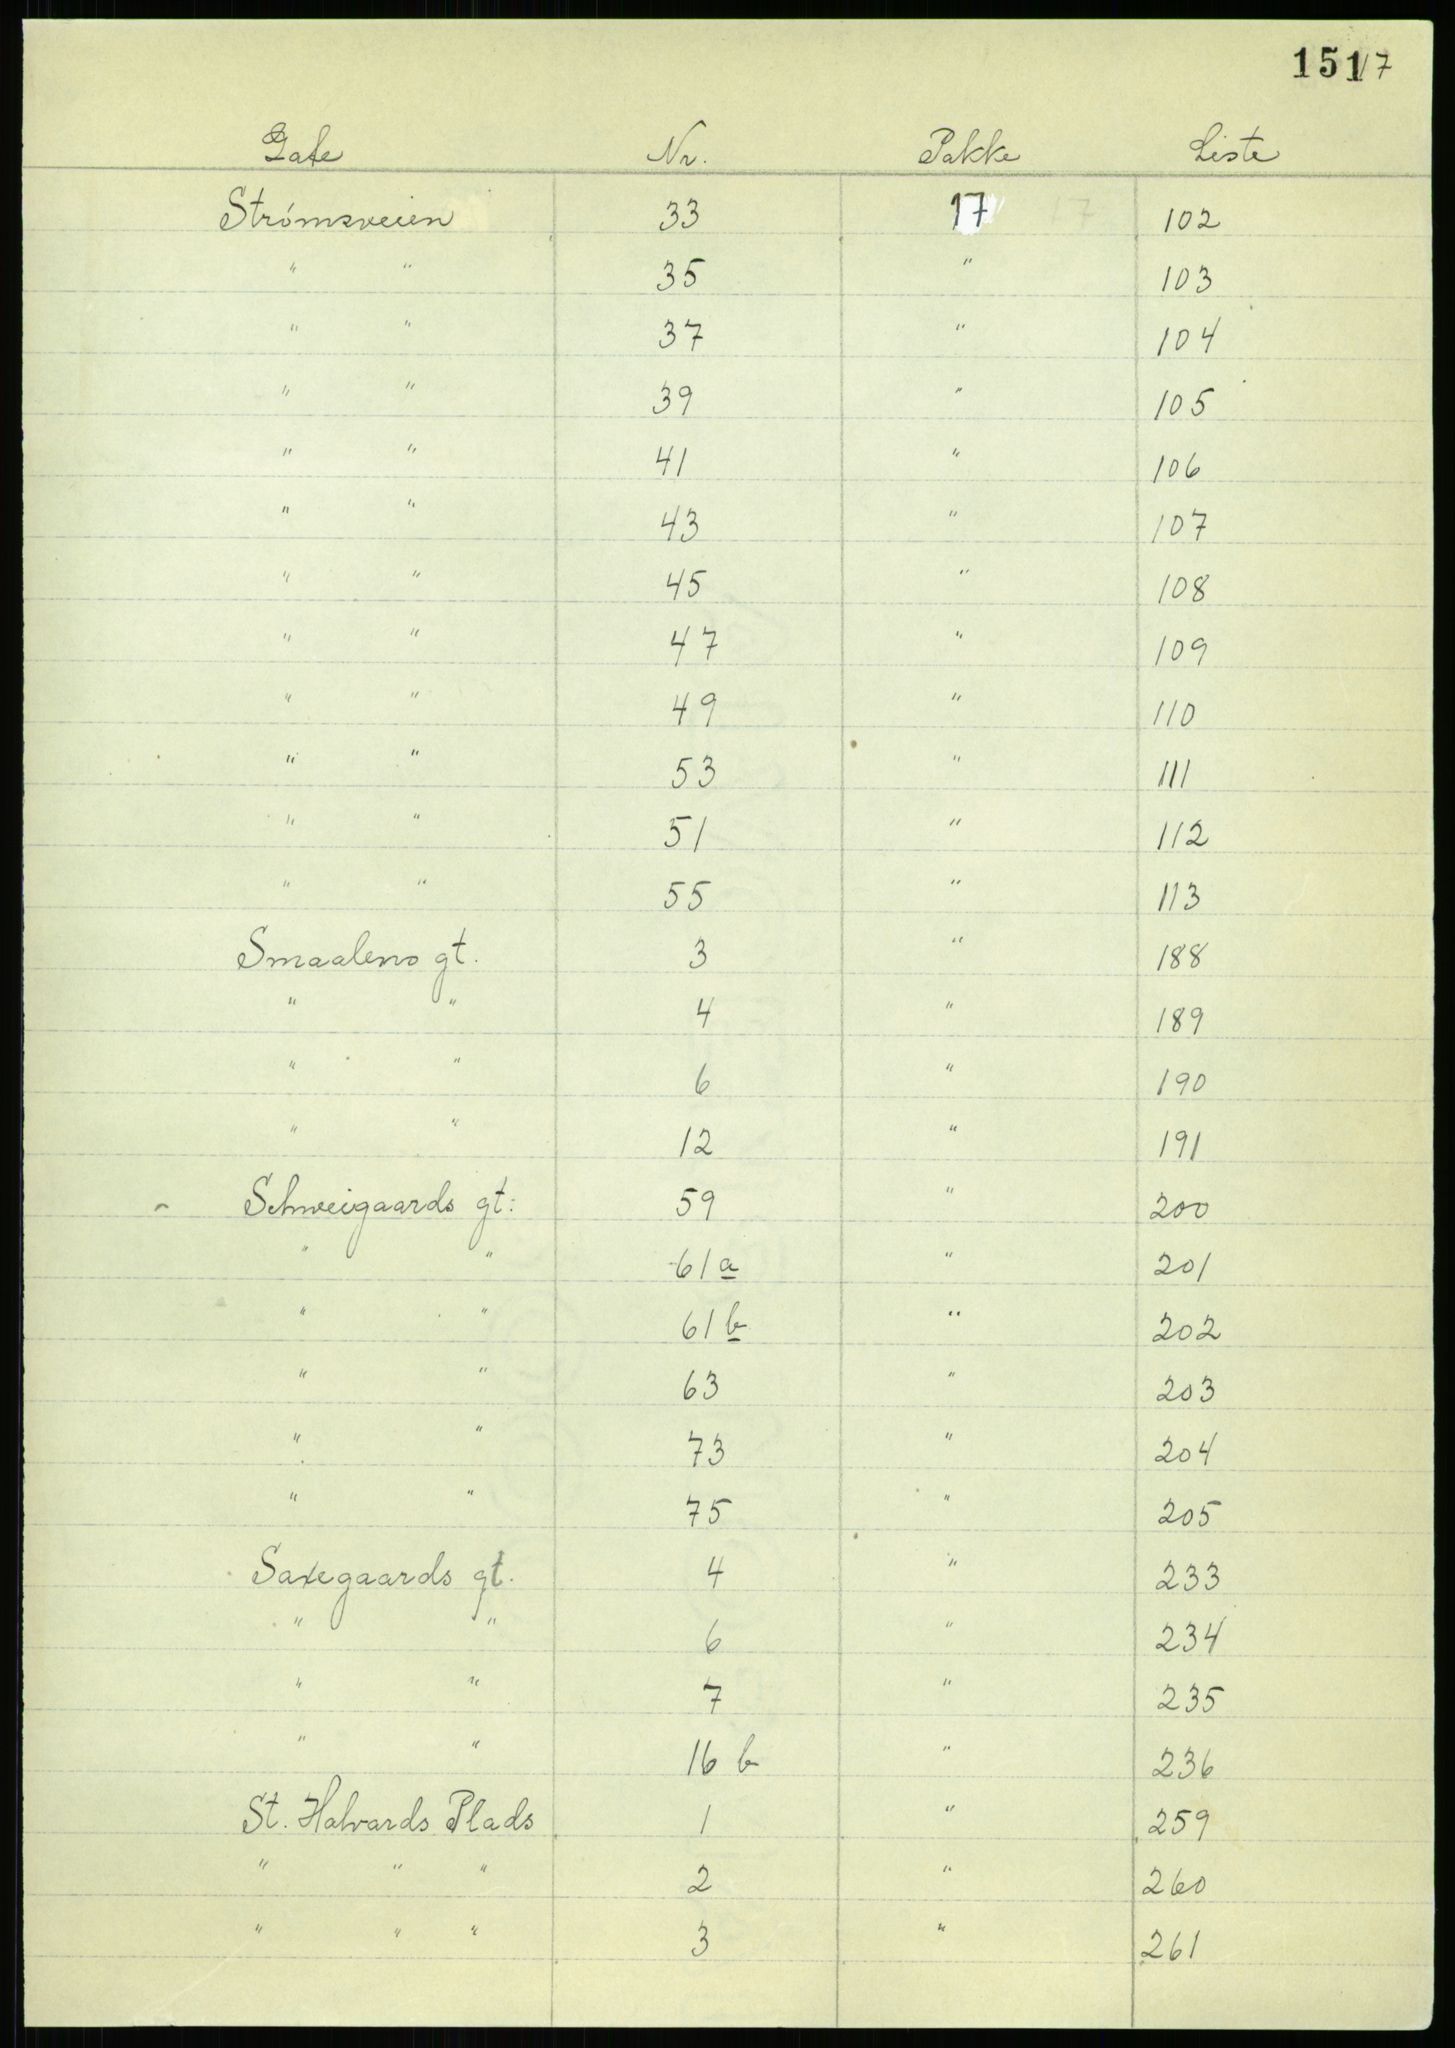 151 17
Gate Nr. Pakke Liste
Strømsveien 33 17 17 102
" " 35 " 103
" " 37 " 104
" " 39 " 105
" " 41 " 106
" " 43 " 107
" " 45 " 108
" " 47 " 109
" " 49 " 110
" " 53 " 111
" " 51 " 112
" " 55 " 113
Smaalens gt. 3 " 188
" " 4 " 189
" " 6 " 190
" " 12 " 191
Schweigaards gt: 59 " 200
" " 61 a " 201
" " 61 b " 202
" " 63 " 203
" " 73 " 204
" " 75 " 205
Saxegaards gt. 4 " 233
" " 6 " 234
" " 7 " 235
" " 16 b " 236
St. Halvards Plads 1 " 259
" " " 2 " 260
" " " 3 " 261